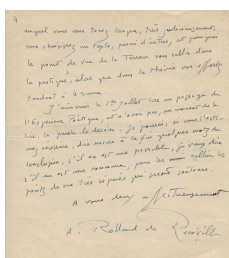 4
auquel vous vous tenez lorsque, très judicieusement,
vous choisissez un texte, parmi d'autres, et pourquoi
le point de vue de la Terreur vous rallie dans
la pratique, alors que dans la théorie vos efforts
tendent à la ruiner.
J'aimerais le 1er Juillet lire un passage de
l'Expérience Poétique, et n'avoir pas, au moment de la
lire, la parole le dernier. Je pourrai, si vous l'esti-
mez nécessaire, dire encore à la fin quelques mots de
conclusion, s'il en est une possible, je veux dire
s'il en est une commune, pour les unir relier les
points de vue très séparés qui seront soutenus.
A vous deux affectueusement
A. Rolland de Renéville